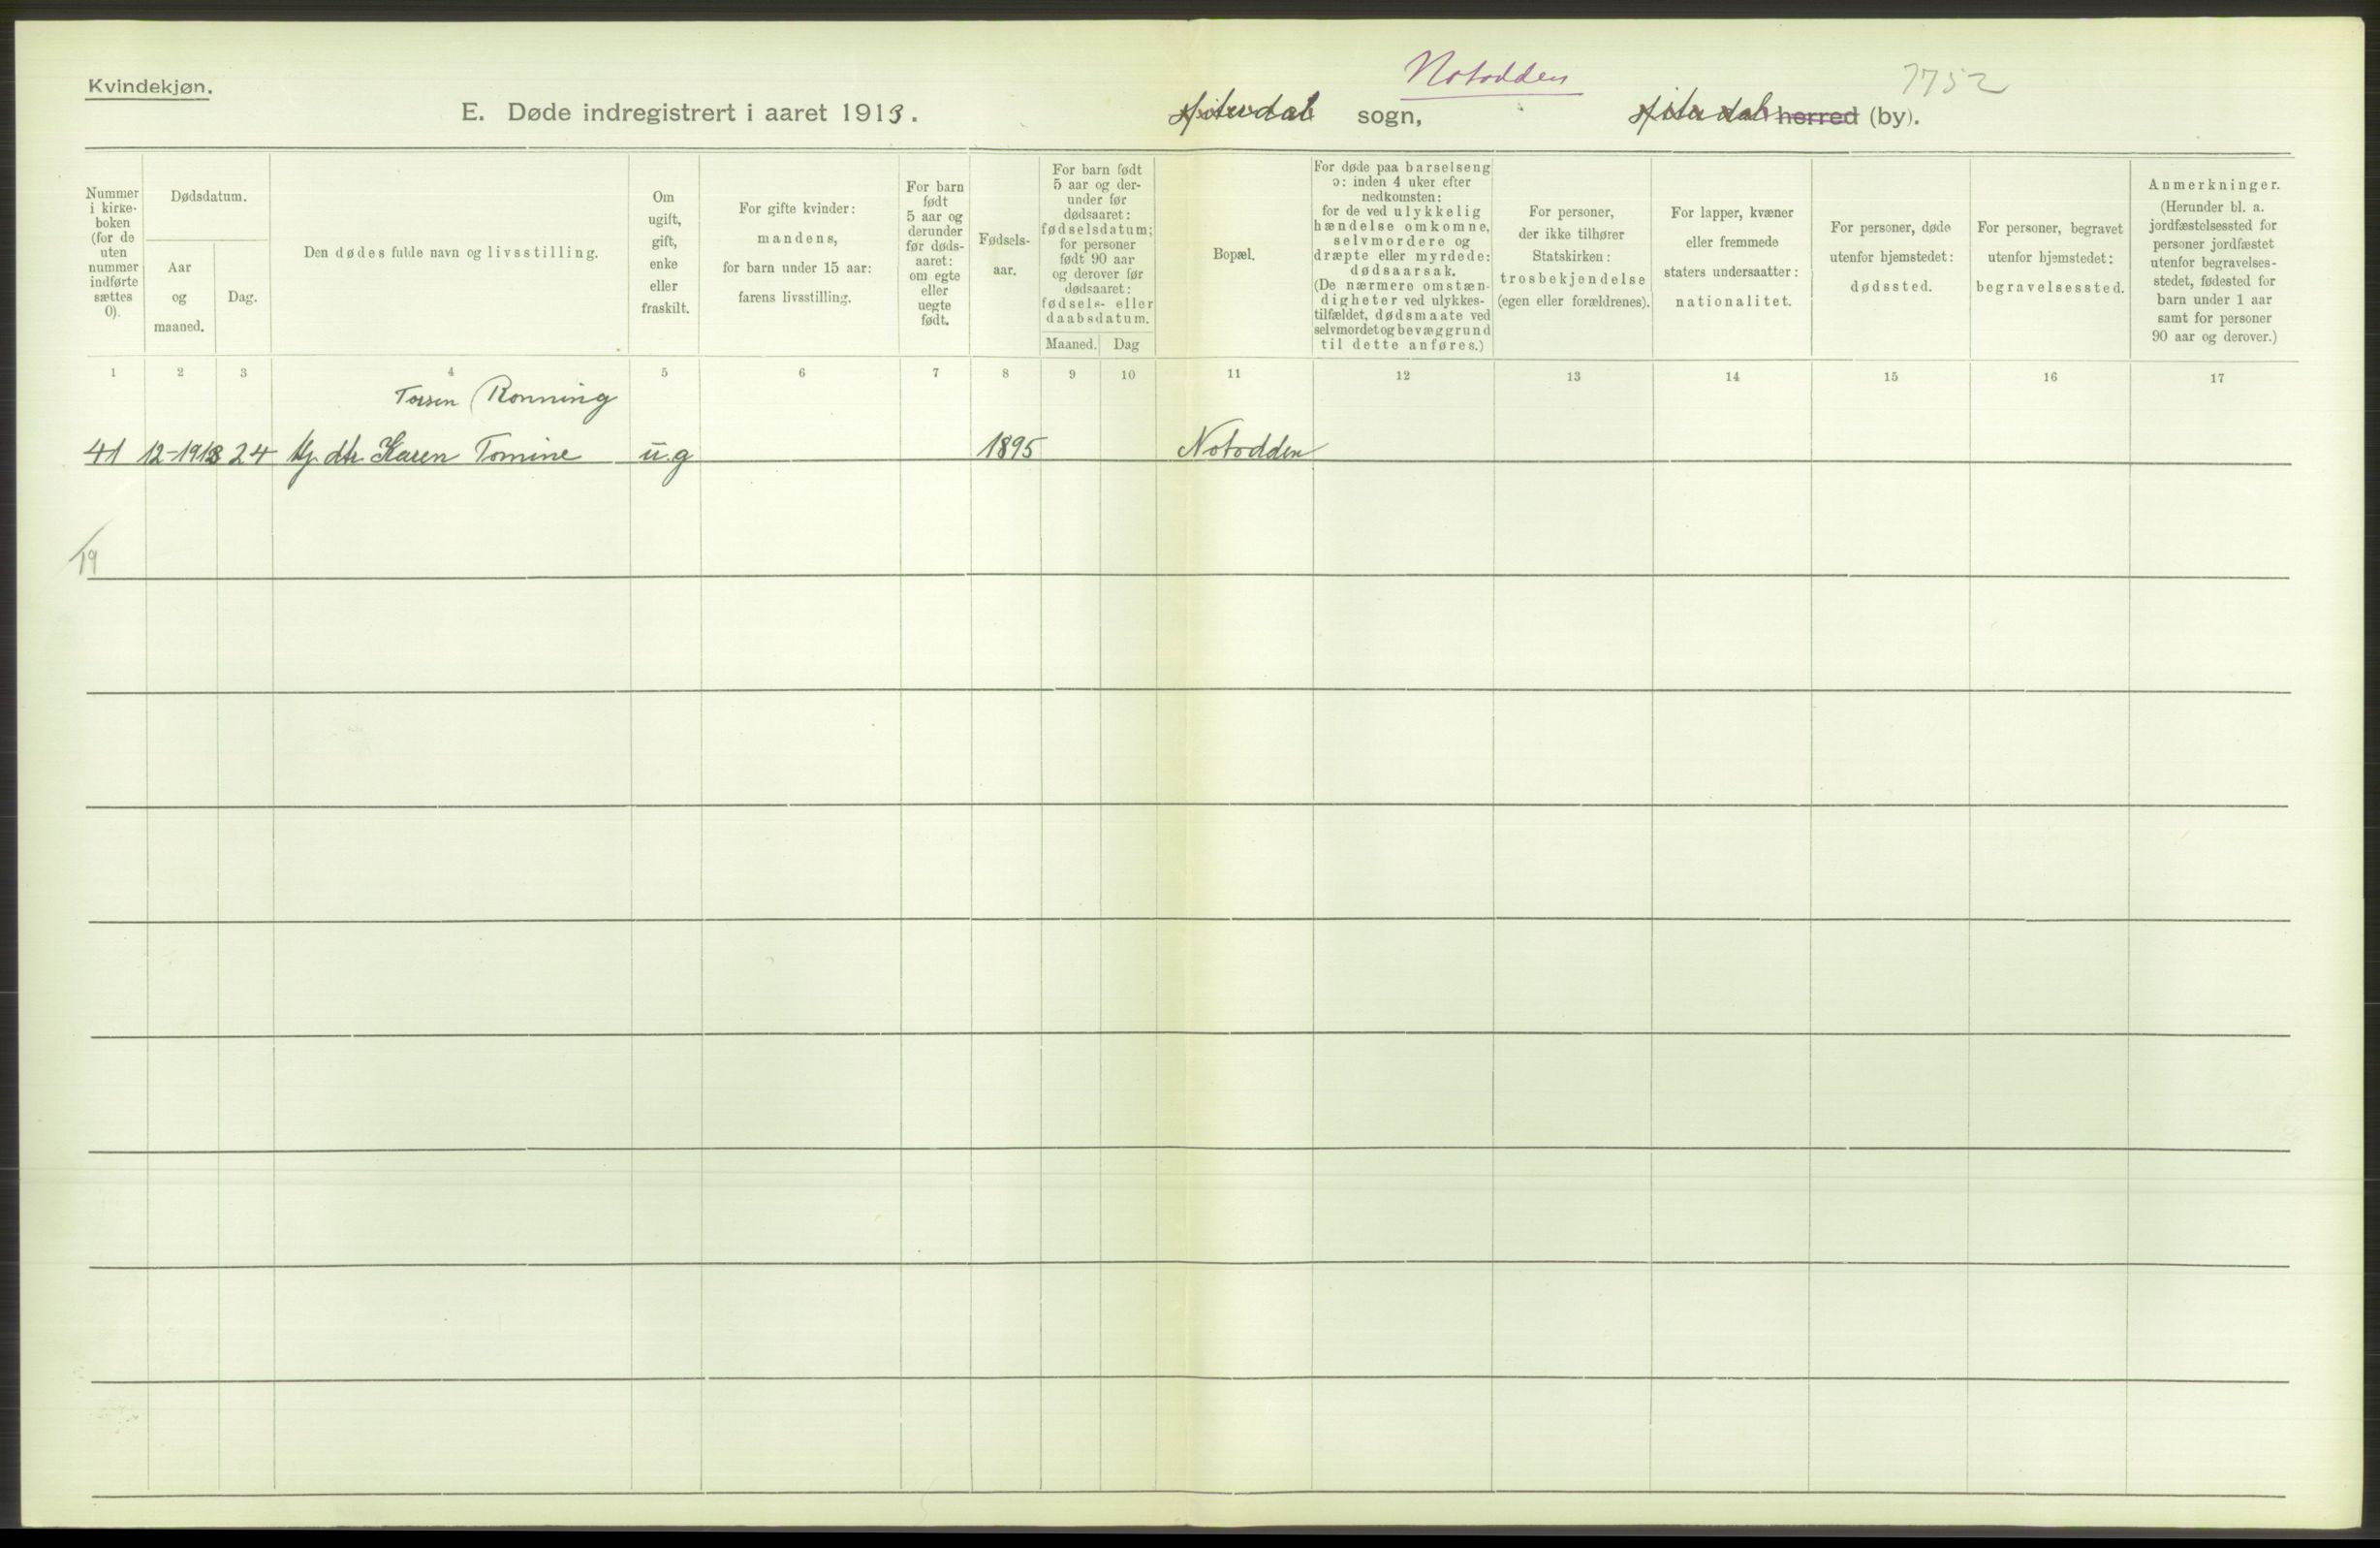 Kvindekjøn.
Notodden
7752
E. Døde indregistrert i aaret 1913.
Hiterdal sogn,
Hiterdal herred (by).
Nummer i kirke- boken (for de uten nummer indførte sættes 0).
Dødsdatum.
Aar og maaned.
Dag.
Den dødes fulde navn og livsstilling.
Om ugift, gift, enke eller fraskilt.
For gifte kvinder: mandens, for barn under 15 aar: farens livsstilling.
For barn født 5 aar og derunder før døds- aaret: om egte eller uegte født.
Fødsels- aar.
For barn født 5 aar og der- under før dødsaaret: fødselsdatum; for personer født 90 aar og derover før dødsaaret: fødsels- eller daabsdatum.
Maaned. Dag
Bopæl.
For døde paa barselseng ɔ: inden 4 uker efter nedkomsten: for de ved ulykkelig hændelse omkomne, selvmordere og dræpte eller myrdede: dødsaarsak. (De nærmere omstæn- digheter ved ulykkes- tilfældet, dødsmaate ved selvmordet og bevæggrund til dette anføres.)
For personer, der ikke tilhører Statskirken: trosbekjendelse (egen eller forældrenes).
For lapper, kvæner eller fremmede staters undersaatter: nationalitet.
For personer, døde utenfor hjemstedet: dødssted.
For personer, begravet utenfor hjemstedet: begravelsessted.
Anmerkninger. (Herunder bl. a. jordfæstelsessted for personer jordfæstet utenfor begravelses- stedet, fødested for barn under 1 aar samt for personer 90 aar og derover.)
1 2 3 4 5 6 7 8 9 10 11 12 13 14 15 16 17
Torsen Ronning
41 12-1913 24 Karen Tomine u.g 1895 Notodden
19